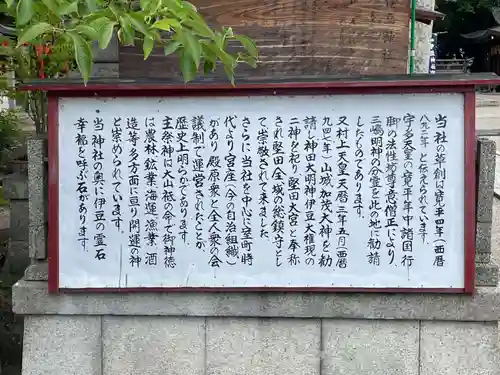 当社の草創は寛平四年（西暦
八九二年）と伝えられています。
宇多天皇の寛平年中諸国行
脚の法性坊尊意僧正により、
三嶋明神の分霊を此の地に勧請
したものであります。
又村上天皇天暦三年五月（西暦
九四七年）山城加茂大神を勧
請し神田大明神伊豆大権現の
二神を祀り堅田大宮と奉称
され堅田全域の総鎮守とし
て崇敬されて来ました。
さらに当社を中心に室町時
代より宮座（今の自治組織）
があり殿原衆と全人衆の会
議制で運営されたことが
歴史上明らかであります。
主祭神は大山祗命で御神徳
は農林鉱業海運漁業酒
造等多方面に亘り開運の神
と崇められています。
当神社の奥に伊豆の霊石
幸福を呼ぶ石があります。